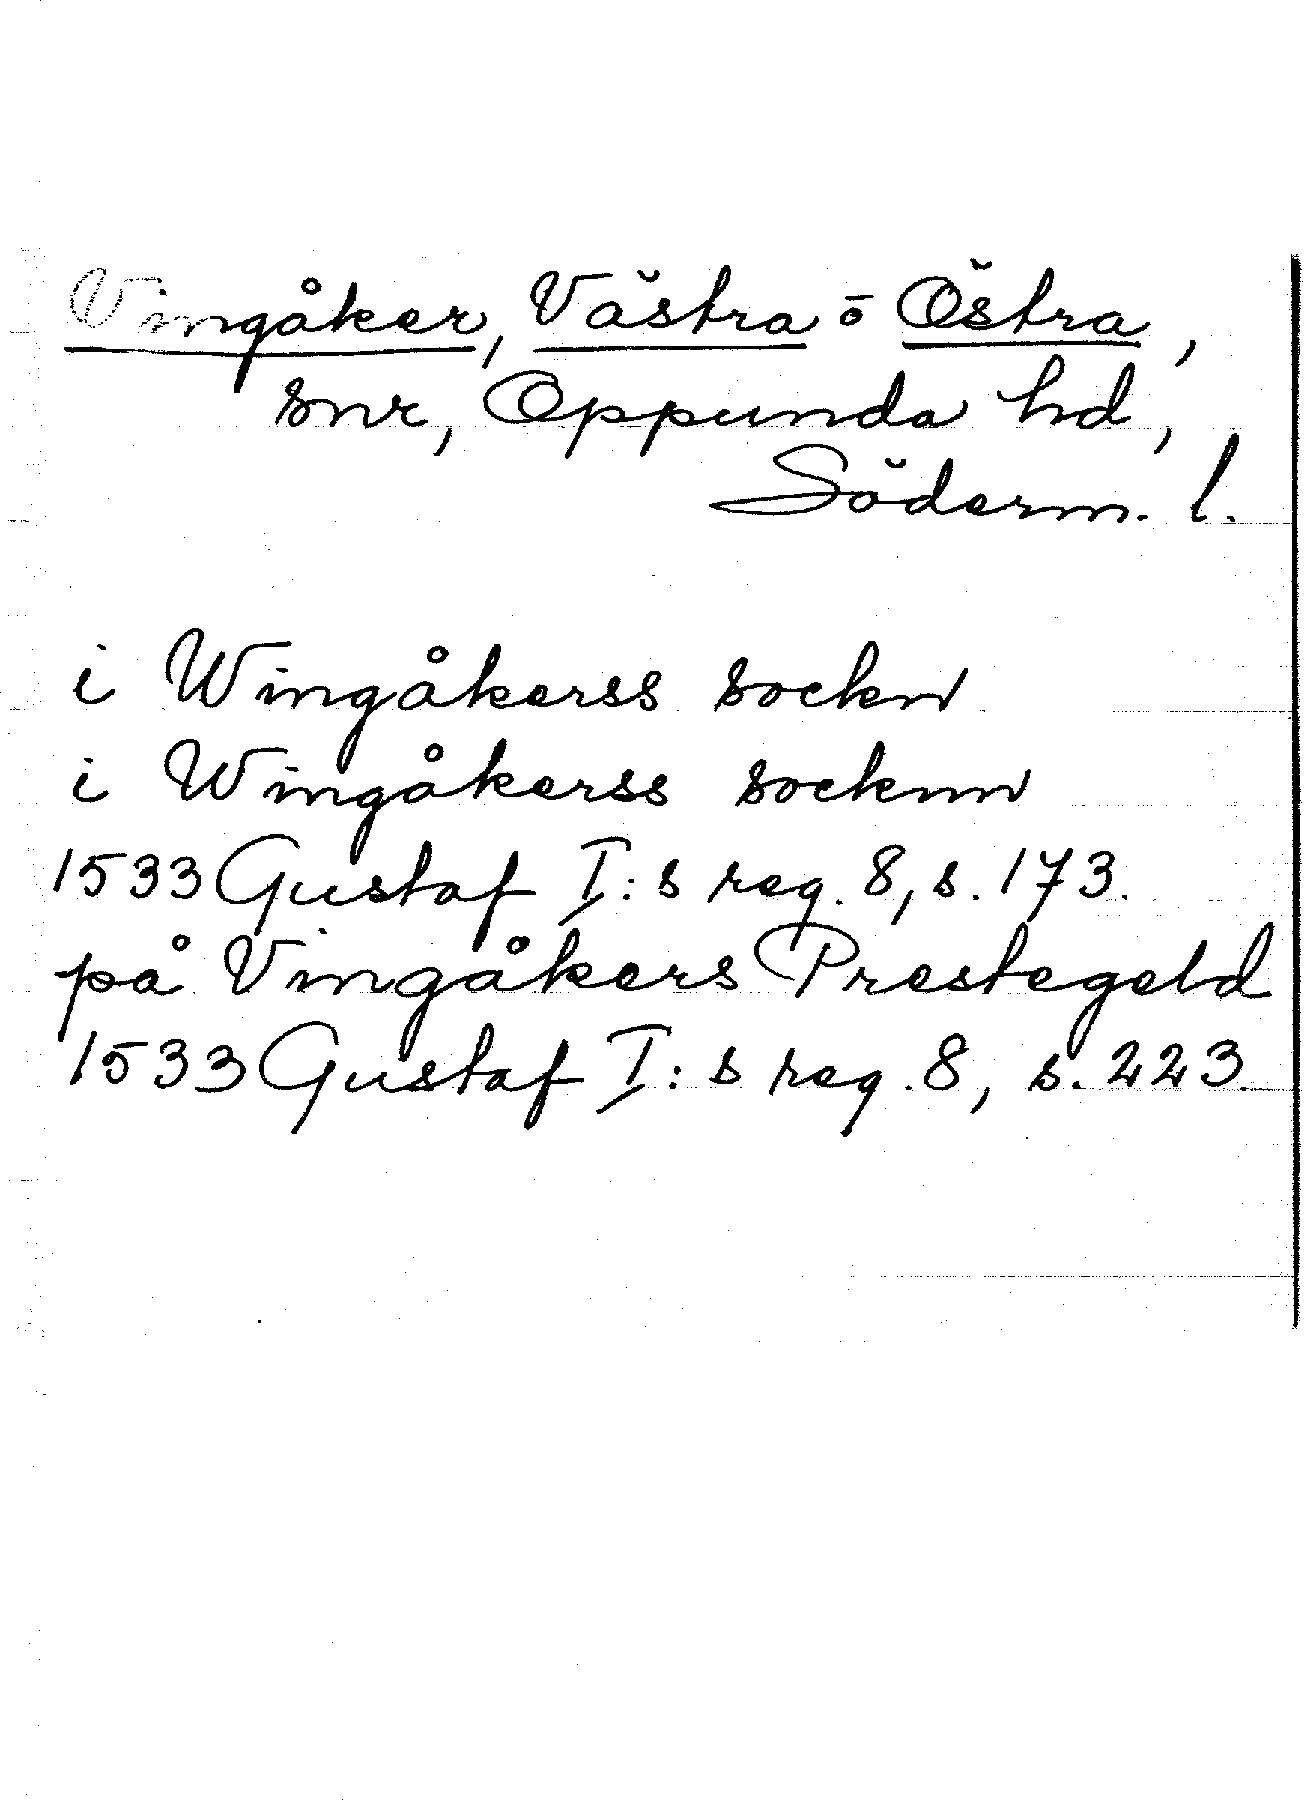 Vingåker, Västra o Östra,
snr, Oppunda hd,
Söderm. l.
i Wingåkerss sockn
i Wingåkerss socknn
1533 Gustaf I:s reg. 8, s. 173.
på Vingåkers Prestegeld
1533 Gustaf I:s reg. 8, s. 223